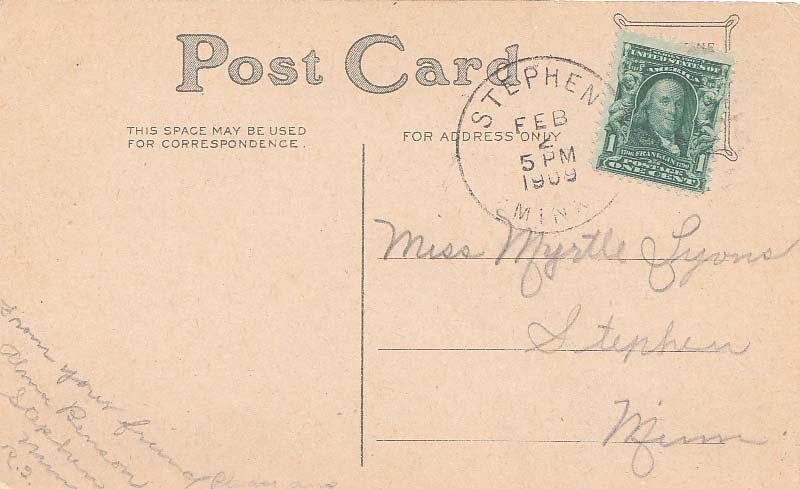 Post Card
THIS SPACE MAY BE USED
FOR CORRESPONDENCE.
FOR ADDRESS ONLY
STEPHEN
FEB
2
5 PM
1909
MINN
UNITED STATES OF
AMERICA
1 FRANKLIN 1
POSTAGE
ONE CENT
Miss Myrtle Lyons
Stephen
Minn
From your friend
Alma Benson
Stephen
Minn
Please